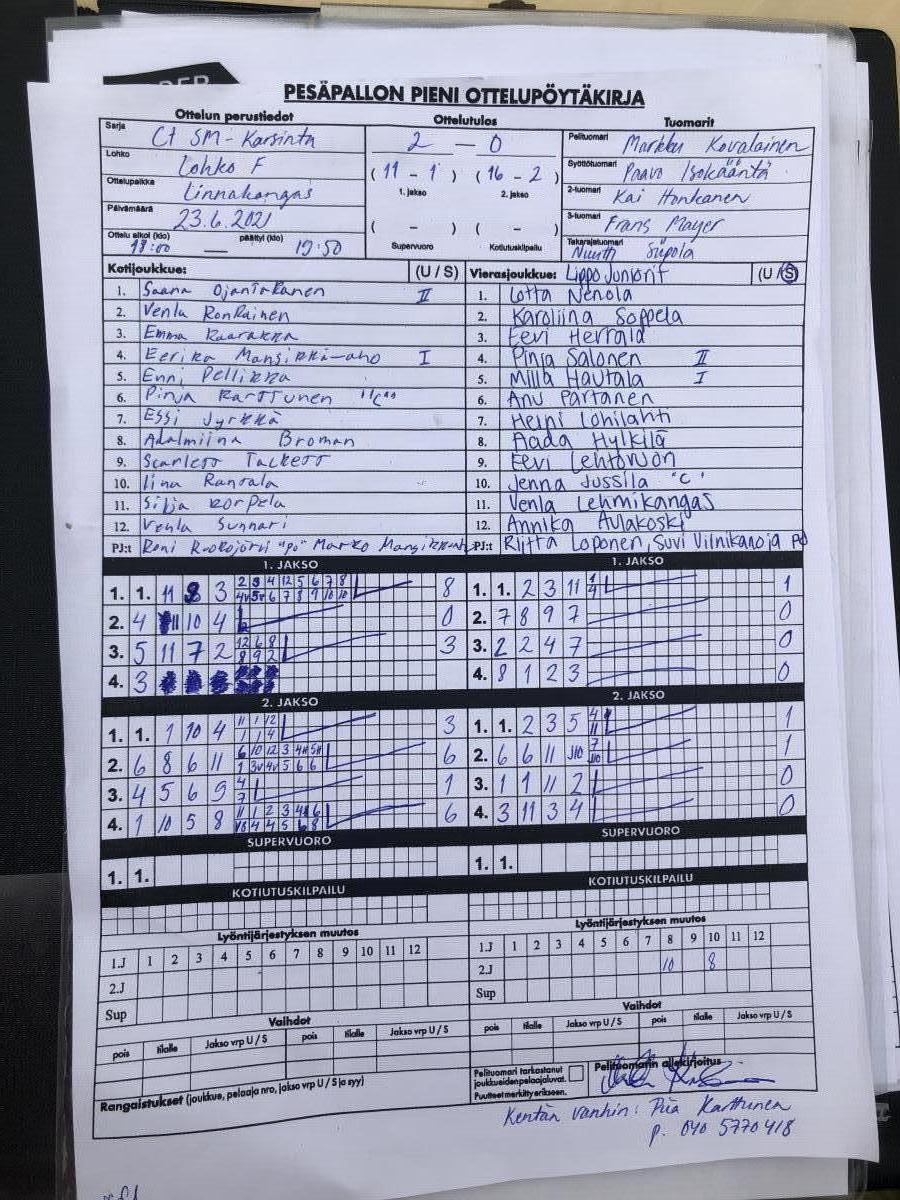 PESÄPALLON PIENI OTTELUPÖYTÄKIRJA
Ottelun perustiedot Ottelutulos Tuomarit
Sarja Ct SM-Karsinta 2 — 0 Pelituomari Markku Kovalainen
Lohko Lohko F (11 - 1) (16 - 2) Syöttötuomari Paavo Isokääntä
Ottelupaikka Linnakangas 1. jakso 2. jakso 2-tuomari Kai Honkanen
Päivämäärä 23.6.2021 ( - ) ( - ) 3-tuomari Frans Mayer
Ottelu alkoi (klo) 18:00 — päättyi (klo) 19:50 Supervuoro Kotiutuskilpailu Takarajatuomari Siipola
Kotijoukkue: (U / S) Vierasjoukkue: Lippo Juniorit (U / S)
1. Saana Ojaniakanen II 1. Lotta Nenola
2. Venla Ronkainen 2. Karoliina Soppela
3. Emma Kaarakka 3. Eevi Herrala
4. Eerika Mansikka-aho I 4. Pinja Salonen II
5. Enni Pellikka 5. Milla Hautala I
6. Pinja Karttunen "C" 6. Anu Partanen
7. Essi Jyrkkä 7. Heini Lohilahti
8. Adalmiina Broman 8. Aada Hylkilä
9. Scarlett Tackett 9. Eevi Lehtonson
10. Iina Rantala 10. Jenna Jussila "C"
11. Silja Korpela 11. Venla Lehmikangas
12. Venla Sunnari 12. Annika Aulakoski
PJ:t Roni Ruokojärvi "PJ" Marko Mansikka-aho PJ:t Riitta Loponen, Suvi Vilnikanoja PJ
1. JAKSO 1. JAKSO
1. 1. 11 8 3 2 3 4 12 5 6 7 8 8 1. 1. 2 3 11 1 1
4v 5v 6 7 8 9 10 10 4
2. 4 11 10 4 0 2. 7 8 9 7 0
3. 5 11 7 2 12 6 8 3 3. 2 2 4 7 0
8 9 2
4. 3 4. 8 1 2 3 0
2. JAKSO 2. JAKSO
1. 1. 1 10 4 11 1 12 3 1. 1. 2 3 5 4 1
1 1 4 11
2. 6 8 6 11 6 10 12 3 4v 5v 6 2. 6 6 11 J10 7 1
1 3v 4v 5 6 6 J10
3. 4 5 6 9 4 1 3. 1 1 11 2 0
7
4. 1 10 5 8 11 1 2 3 4v 6 6 4. 3 11 3 4 0
10 4 4 5 6 8
SUPERVUORO SUPERVUORO
1. 1. 1. 1.
KOTIUTUSKILPAILU KOTIUTUSKILPAILU
Lyöntijärjestyksen muutos Lyöntijärjestyksen muutos
1.J 1 2 3 4 5 6 7 8 9 10 11 12 1.J 1 2 3 4 5 6 7 8 9 10 11 12
2.J 2.J 10 8
Sup Sup
Vaihdot Vaihdot
pois tilalle Jakso vrp U / S pois tilalle Jakso vrp U / S pois tilalle Jakso vrp U / S pois tilalle Jakso vrp U / S
Rangaistukset (joukkue, pelaaja nro, jakso vrp U / S ja syy) Pelituomari tarkastanut joukkueiden pelaajaluvat. Puutteet merkitty erikseen. Pelituomarin allekirjoitus
Kentän vanhin: Piia Karttunen
p. 040 5770418